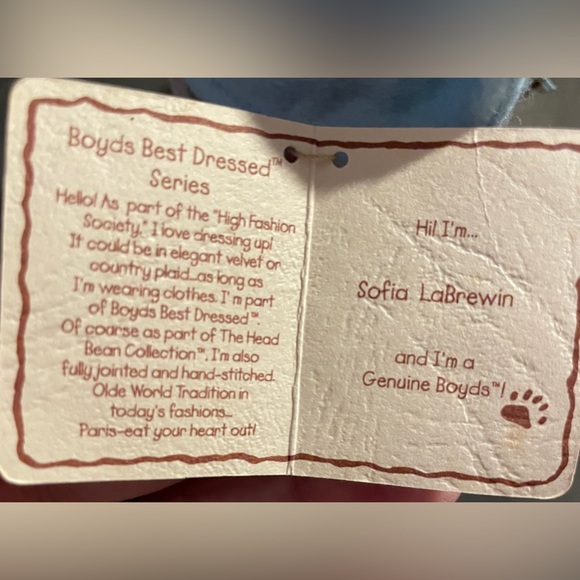 Boyds Best Dressed™
Series
Hello! As part of the "High Fashion
Society," I love dressing up!
It could be in elegant velvet or
country plaid...as long as
I'm wearing clothes. I'm part
of Boyds Best Dressed™.
Of coarse as part of The Head
Bean Collection™, I'm also
fully jointed and hand-stitched.
Olde World Tradition in
today's fashions...
Paris-eat your heart out!
Hi! I'm...
Sofia LaBrewin
and I'm a
Genuine Boyds™!